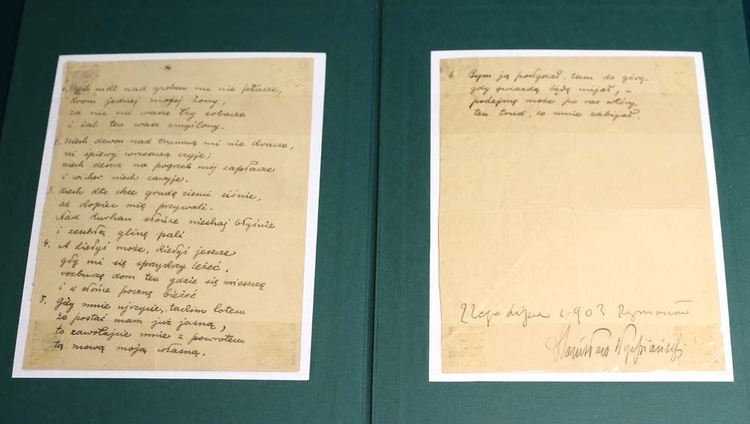 1. Niech nikt nad grobem mi nie płacze,
krom jednej mojej żony,
za nic mi wasze łzy sobacze
i żal ten wasz zmyślony.
2. Niech dzwon nad trumną mi nie kracze,
ni śpiewy wrzeszczą czyje;
niech deszcz na pogrzeb mój zapłacze
i wicher niech zawyje.
3. Niech kto chce grudę ziemi ciśnie,
aż kopiec mię przywali.
Nad kurhan słońce niechaj błyśnie
i zeschłą glinę pali
4. A kiedyś może, kiedyś jeszcze
gdy mi się sprzykrzy leżeć,
rozburzę dom ten gdzie się mieszczę
i w słońce pocznę bieżeć
5. Gdy mnie ujrzycie, takim lotem
że postać mam już jasną,
to zawołajcie mnie z powrotem
tą mową moją własną.
6. Bym ją posłyszał, tam do góry
gdy gwiazdą będę mijał, –
podejmę może po raz wtóry
ten trud, co mnie zabijał.
22go lipca 1903 Rymanów
Stanisław Wyspiański